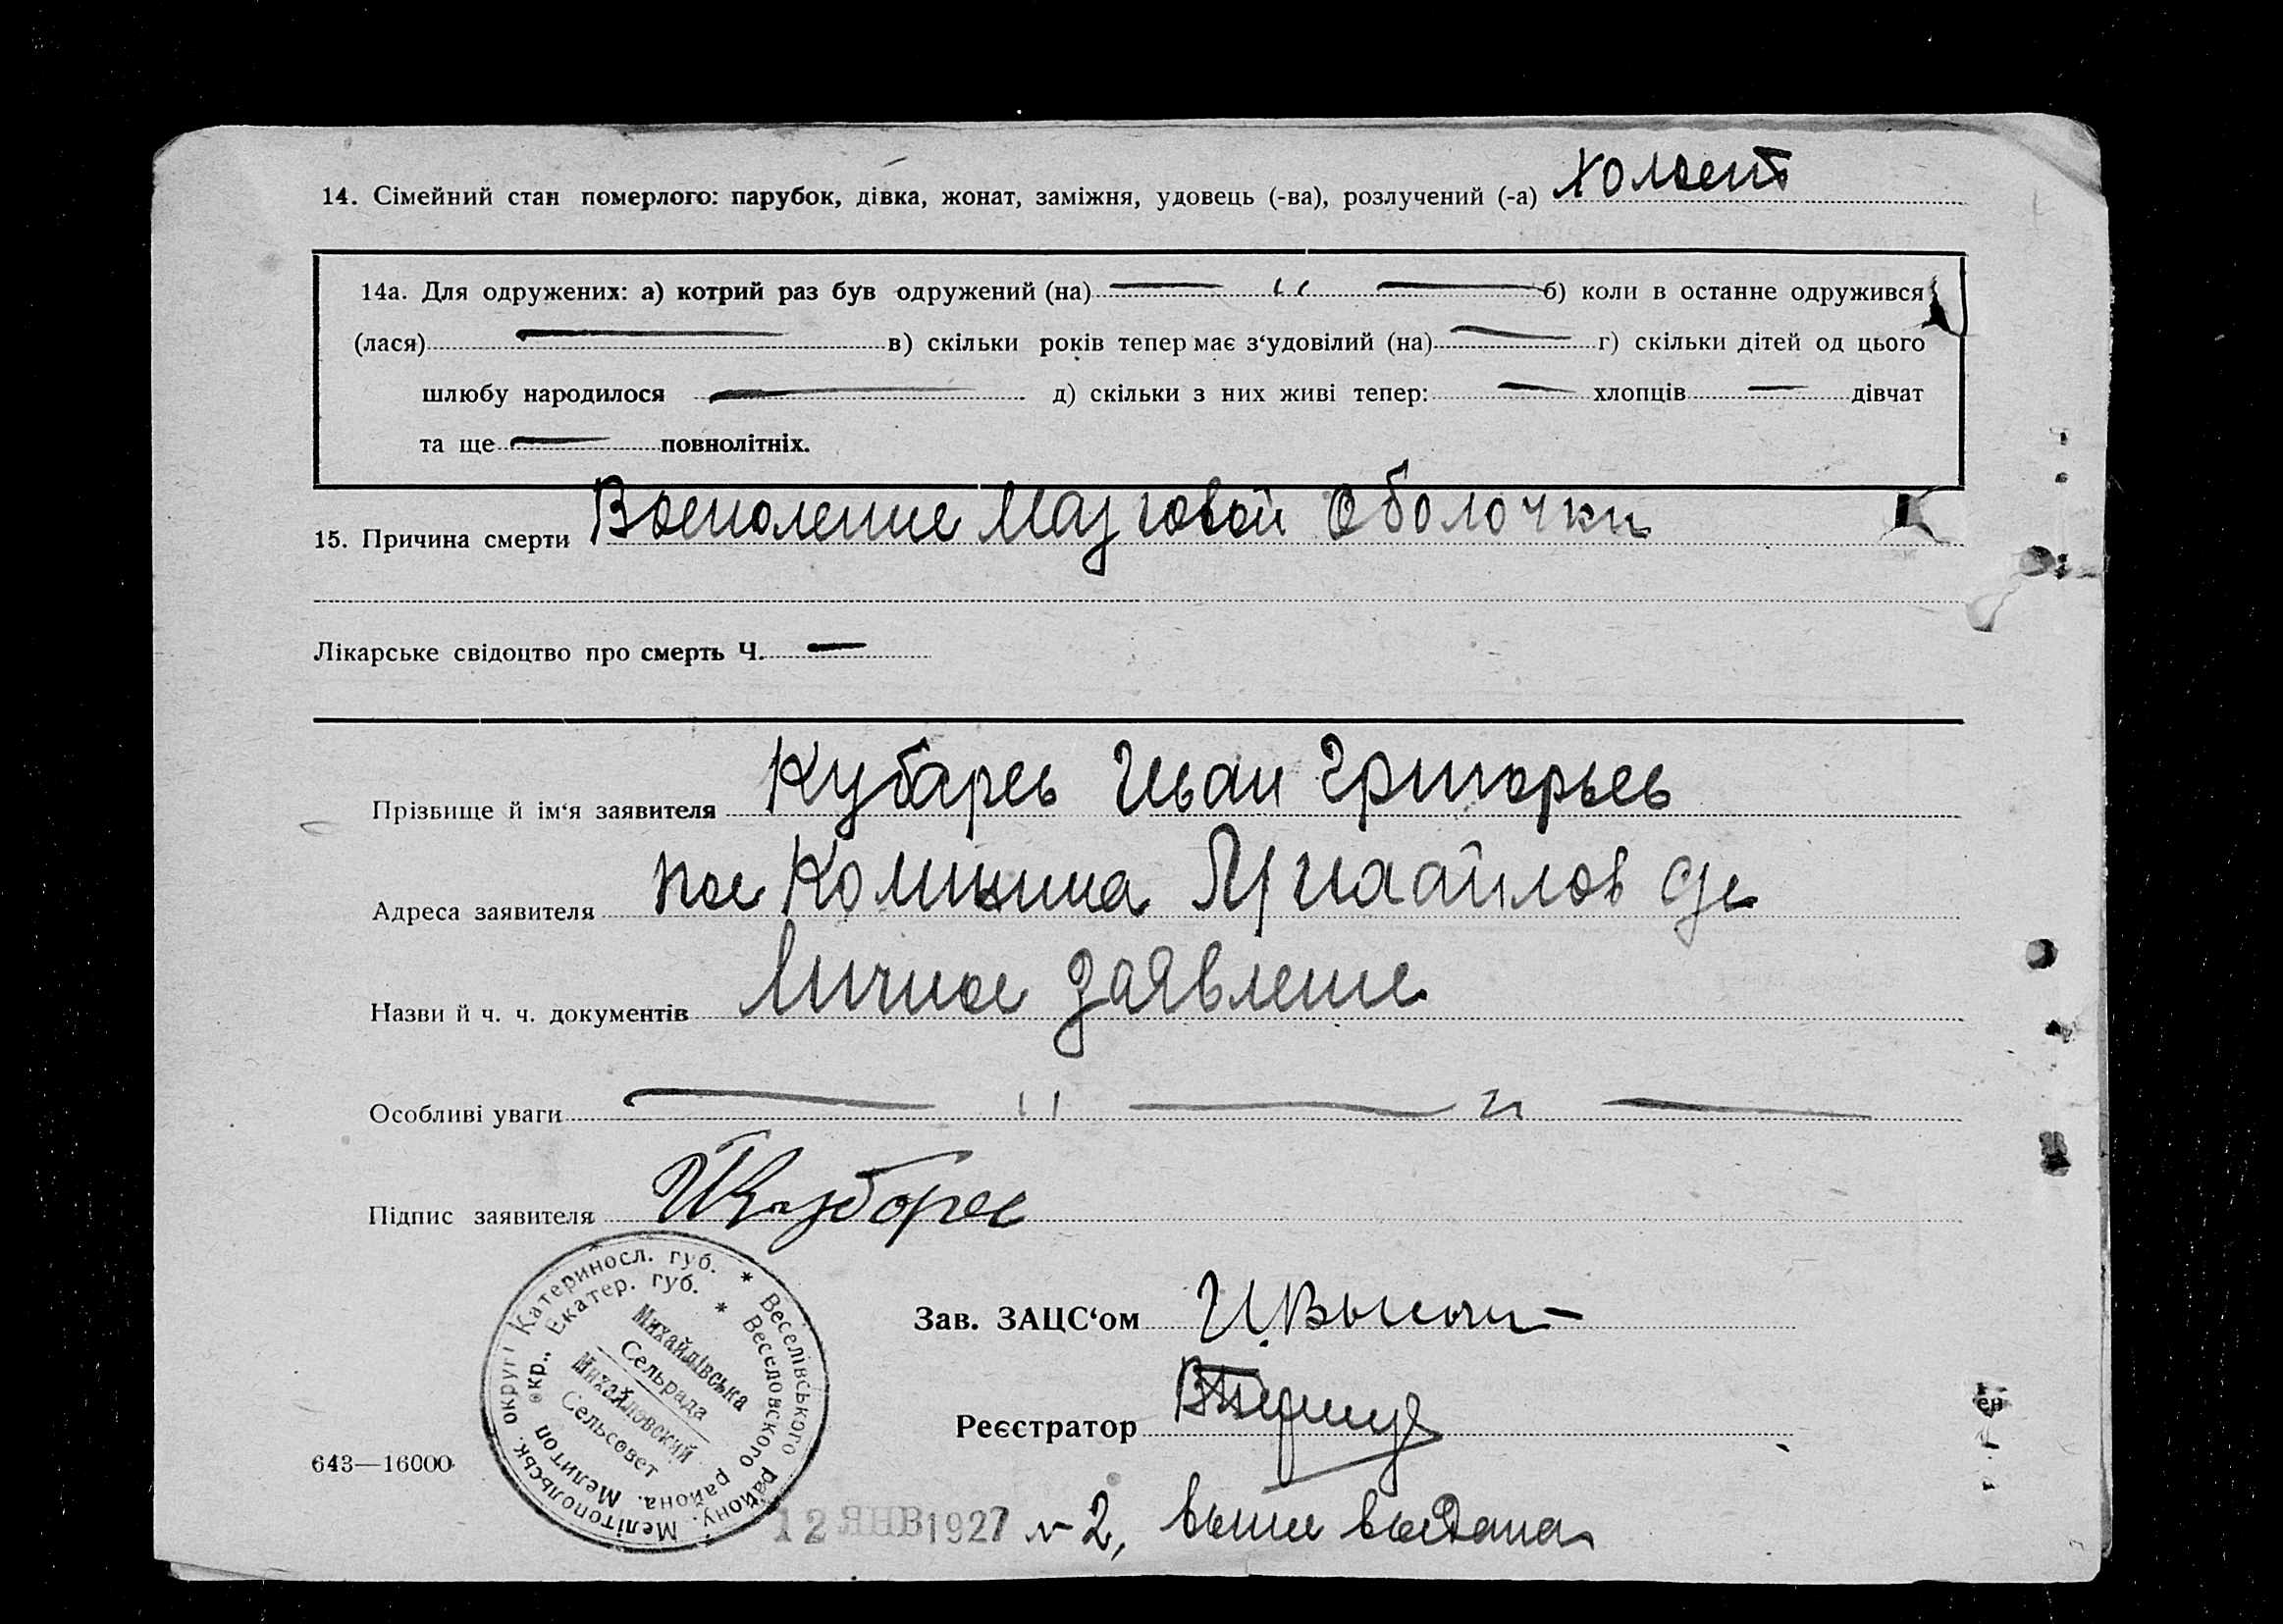 14. Сімейний стан померлого: парубок, дівка, жонат, заміжня, удовець (-ва), розлучений (-а) холост
14а. Для одружених: а) котрий раз був одружений (на) — " — б) коли в останне одружився
(лася) — в) скільки років тепер має з‘удовілий (на) — г) скільки дітей од цього
шлюбу народилося — д) скільки з них живі тепер: — хлопців — дівчат
та ще — повнолітніх.
15. Причина смерти Восполение Мазговой Оболочки
Лікарське свідоцтво про смерть Ч. —
Прізвище й ім‘я заявителя Кубарев Иван Григорьев
Адреса заявителя пос
Назви й ч. ч. документів личное заявление
Особливі уваги — " — " —
Підпис заявителя
Катериносл. губ. * Веселівського району. Мелітопольськ. округі
окр., Екатер. губ. * Веселовского района. Мелитоп
Михайлівська
Сельрада
Михайловский
Сельсовет
Зав. ЗАЦС‘ом
Реєстратор
643—16000
12 ЯНВ 1927 № 2, выпис выдана
ен